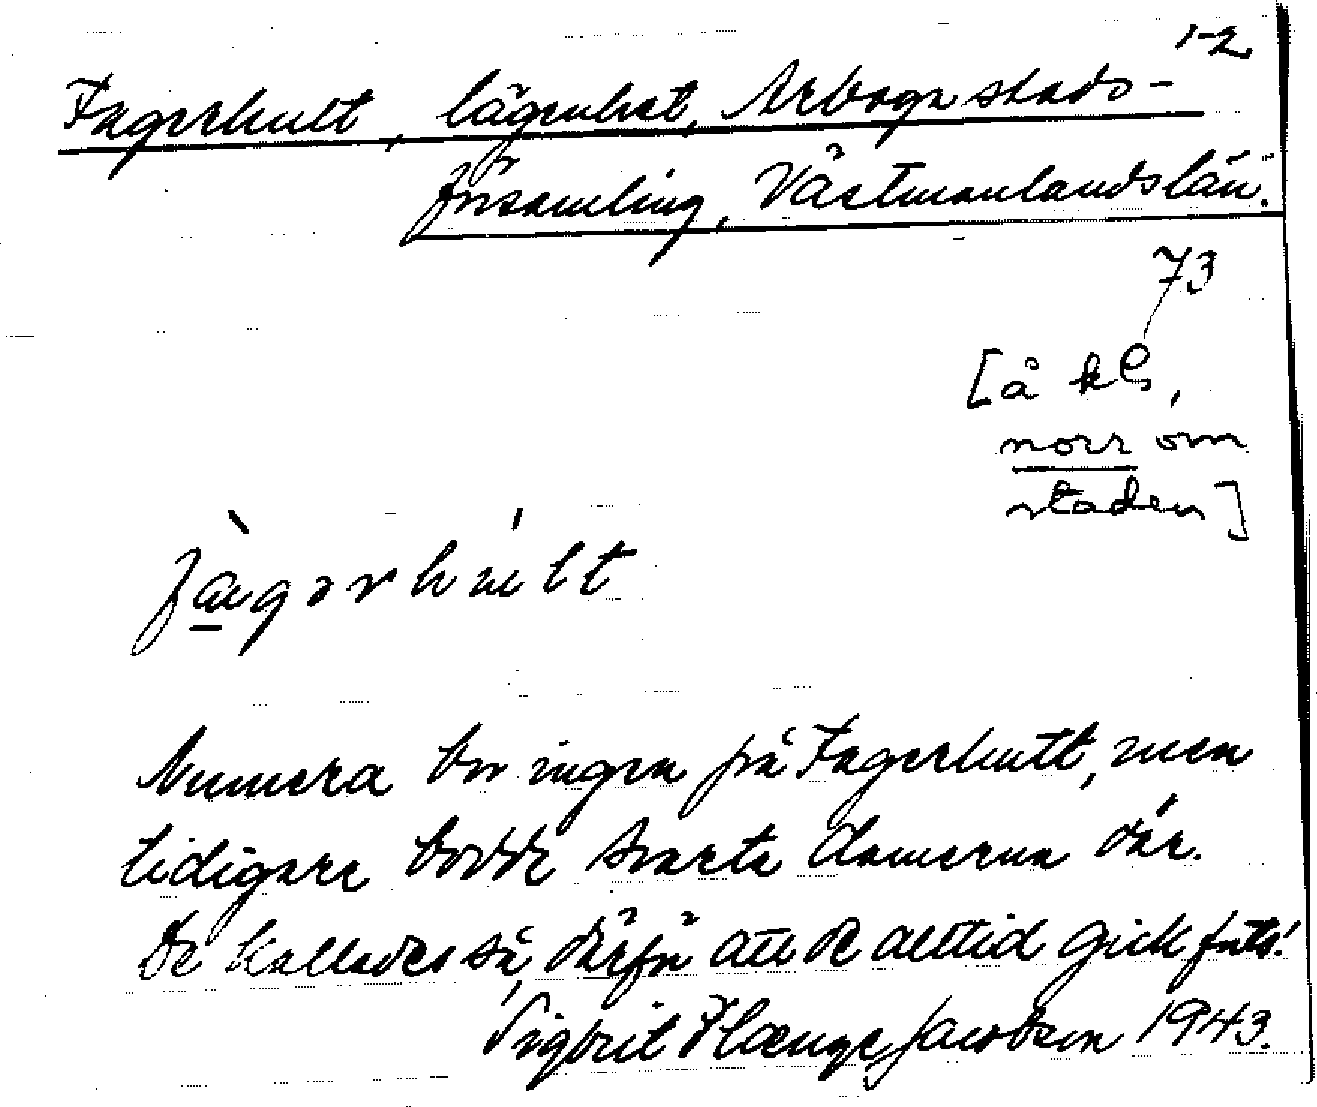 1-2
Fagerhult, lägenhet, Arboga stads-
församling, Västmanlands län.
73
[å kb,
norr om
staden]
fàgərhúlt
Numera bor ingen på Fagerhult, men
tidigare bodde svarta damerna där.
De kallades så, därför att de alltid gick
Sigbrit Plænge Jacobson 1943.